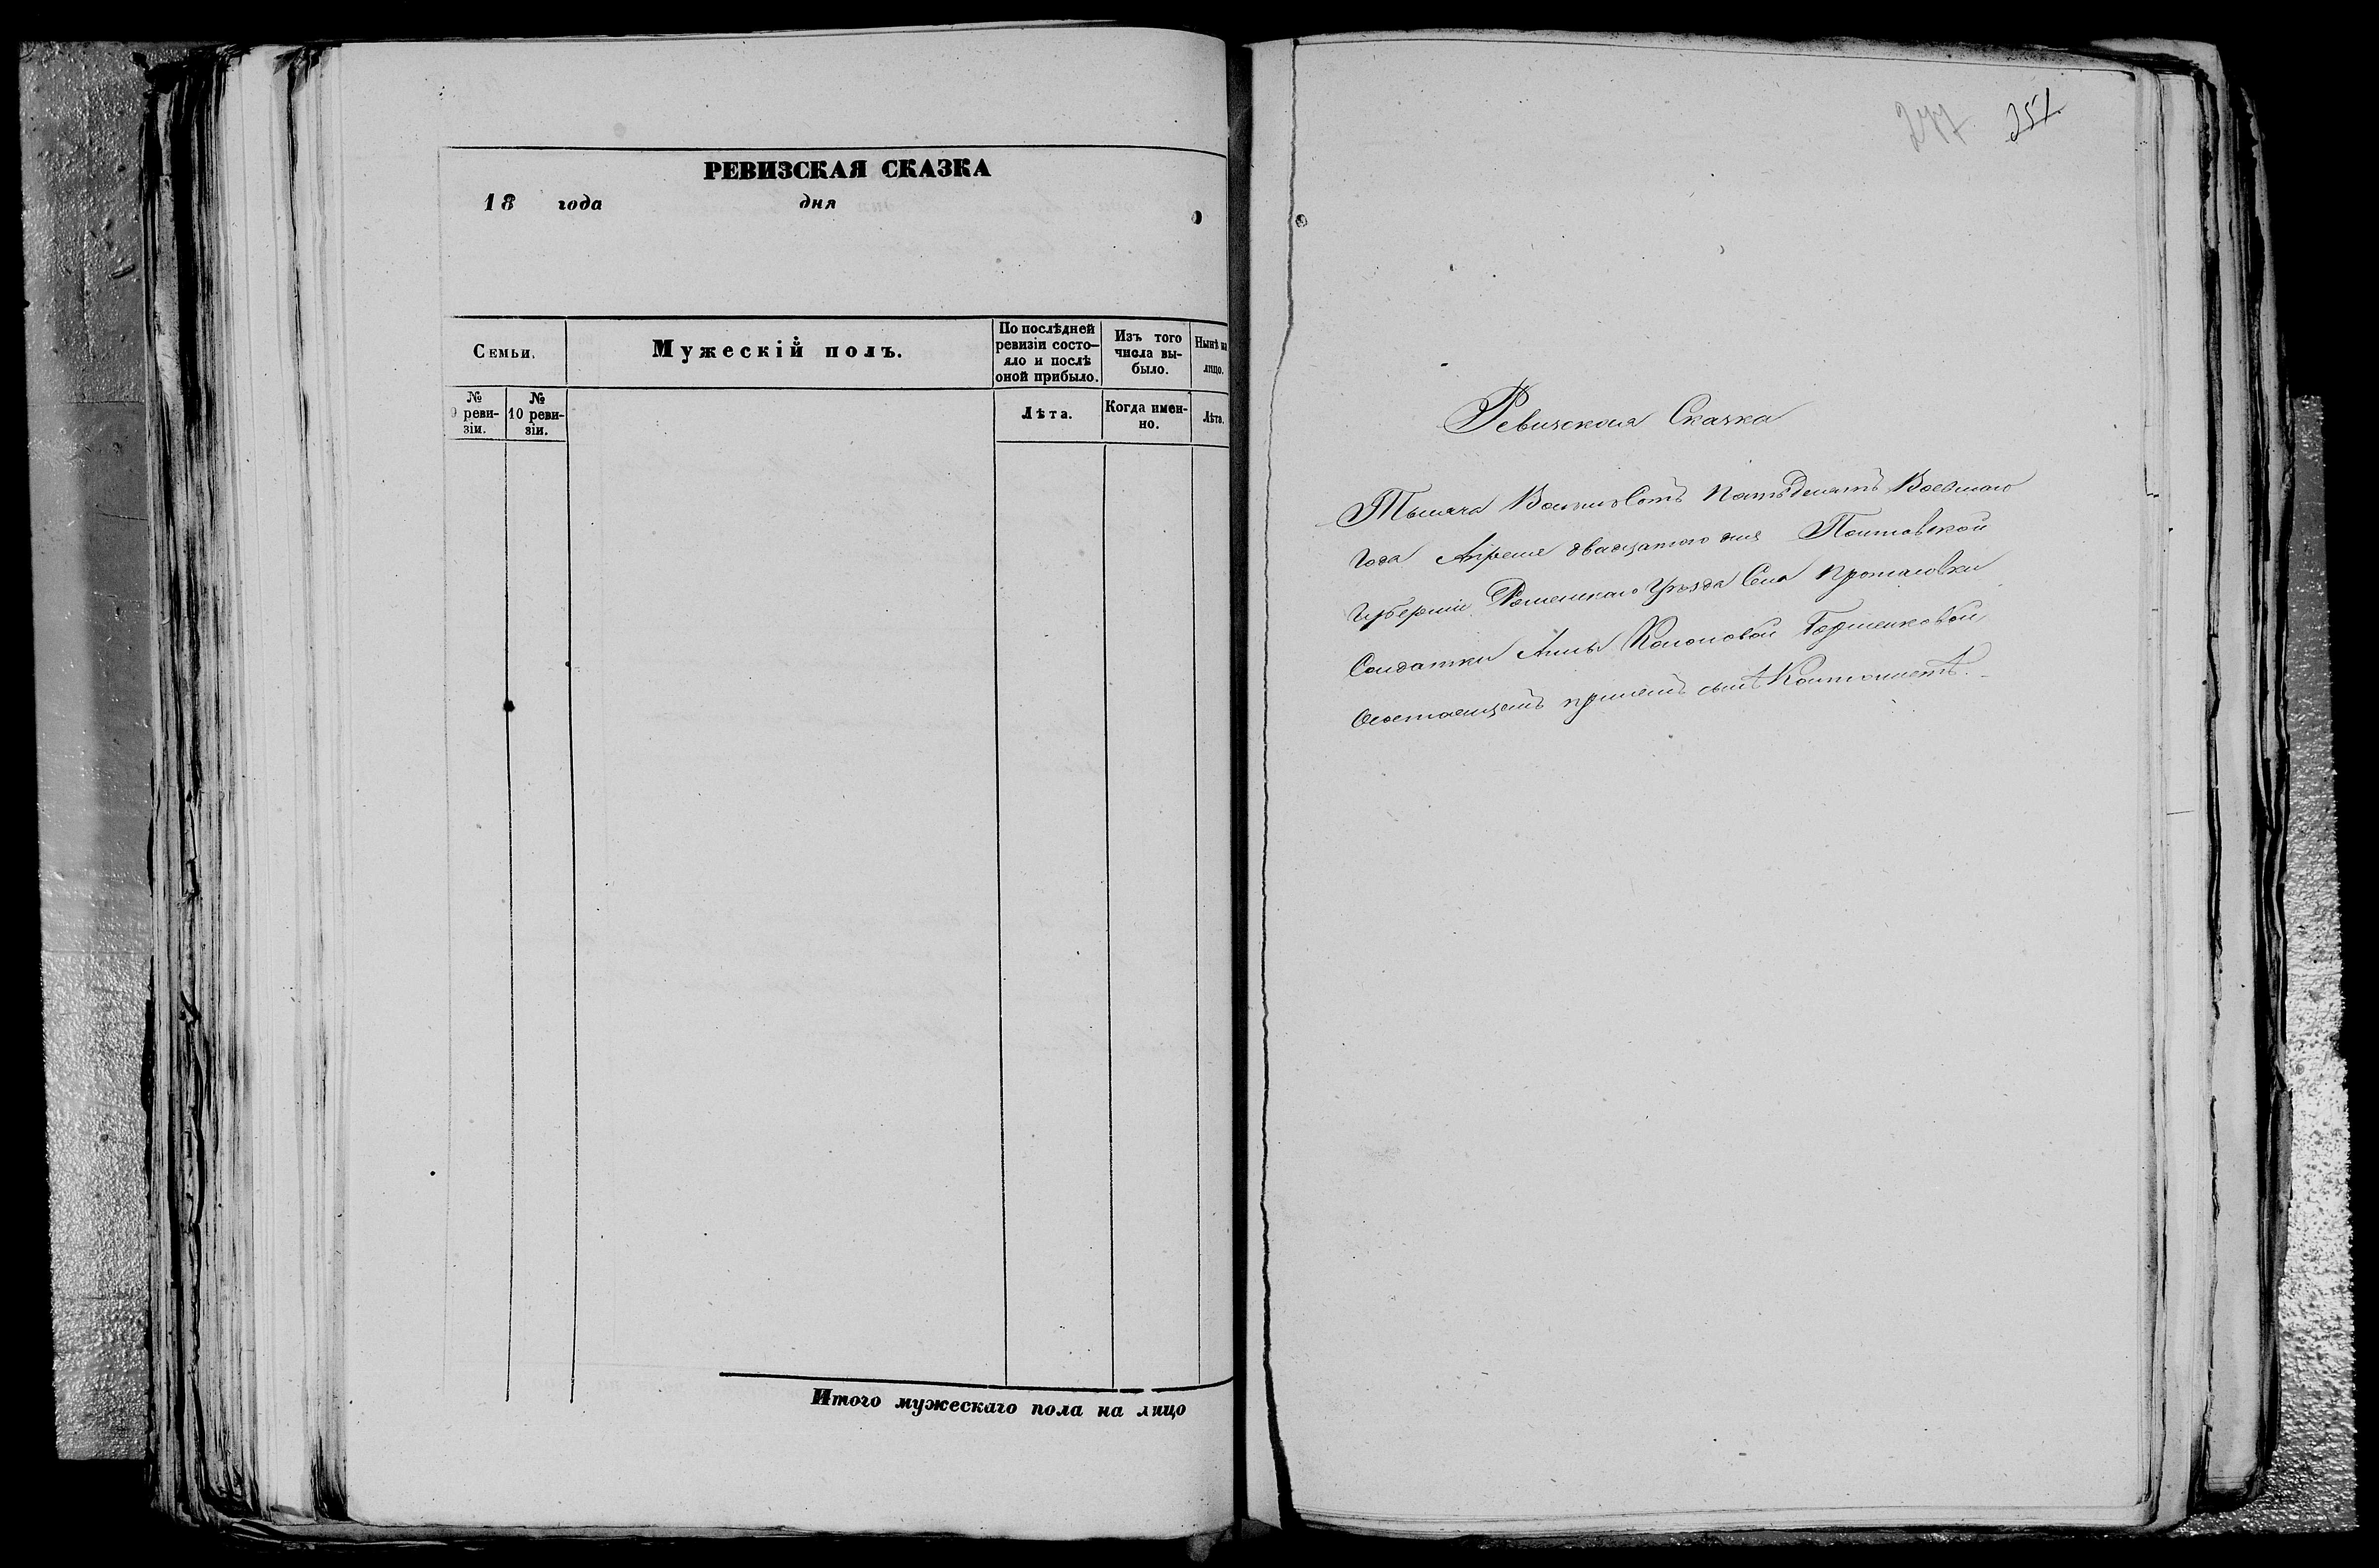 РЕВИЗСКАЯ СКАЗКА
18 года дня
Семьи.
Мужескій полъ.
По послѣдней
ревизіи состо-
яло и послѣ
оной прибыло.
Изъ того
числа вы-
было.
Нынѣ на
лицо.
№
9 реви-
зіи.
№
10 реви-
зіи.
Лѣта.
Когда имен-
но.
Лѣта.
Итого мужескаго пола на лицо
277 251
Ревизская Сказка
Тысяча Восемъ Сотъ Пятьдесятъ Восьмого
года Апреля двадцатого дня Полтавской
Губерніи Роменскаго Уѣзда Села Протасовки
Солдатки Анны
состоящемъ при ней сынѣ Кантонистѣ.